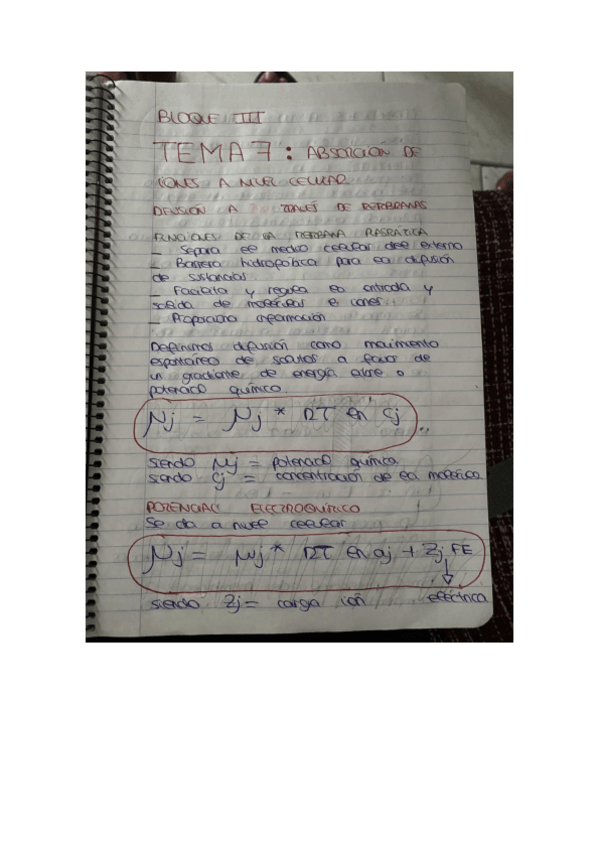 BLOQUE III
TEMA 7: ABSORCIÓN DE
IONES A NIVEL CELULAR
DIFUSIÓN A TRAVÉS DE MEMBRANAS
FUNCIONES DE LA MEMBRANA PLASMÁTICA
_ Separa el medio celular del externo
_ Barrera hidrofóbica para la difusión
de sustancias.
_ Facilita y regula la entrada y
salida de moléculas e iones.
_ Proporciona información
Definimos difusión como movimiento
espontáneo de solutos a favor de
un gradiente de energía libre o
potencial químico.
μj = μj* RT ln Cj
siendo μj = potencial química
siendo Cj = concentración de la molécula
POTENCIAL ELECTROQUÍMICO
Se da a nivel celular
μj = μj* RT ln aj + Zj FE
siendo Zj = carga ión eléctrica